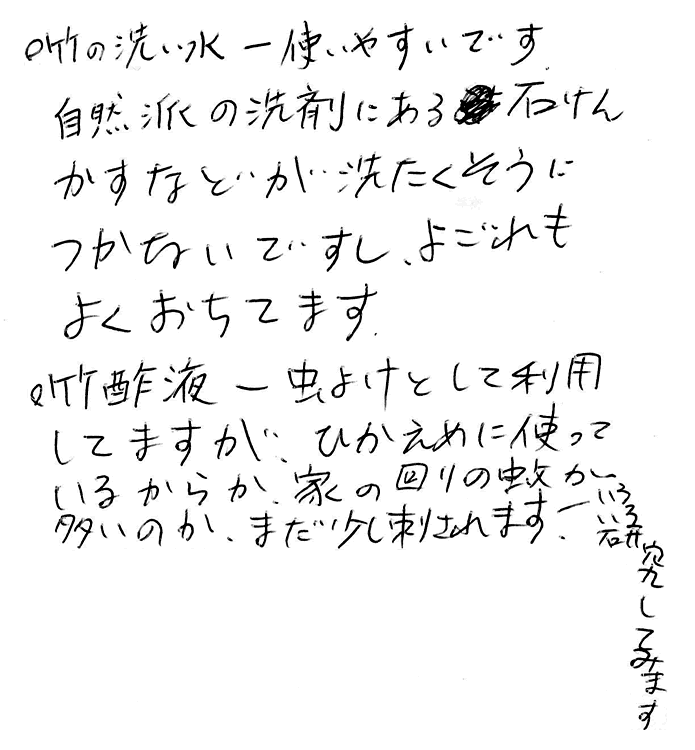 ○竹の洗い水 ー 使いやすいです
自然派の洗剤にある石けん
かすなどが洗たくそうに
つかないですし、よごれも
よくおちてます.
○竹酢液 ー 虫よけとして利用
してますが、ひかえめに使って
いるからか、家の回りの蚊が
多いのか、まだ少し刺されます.ー いろいろ研究してみます